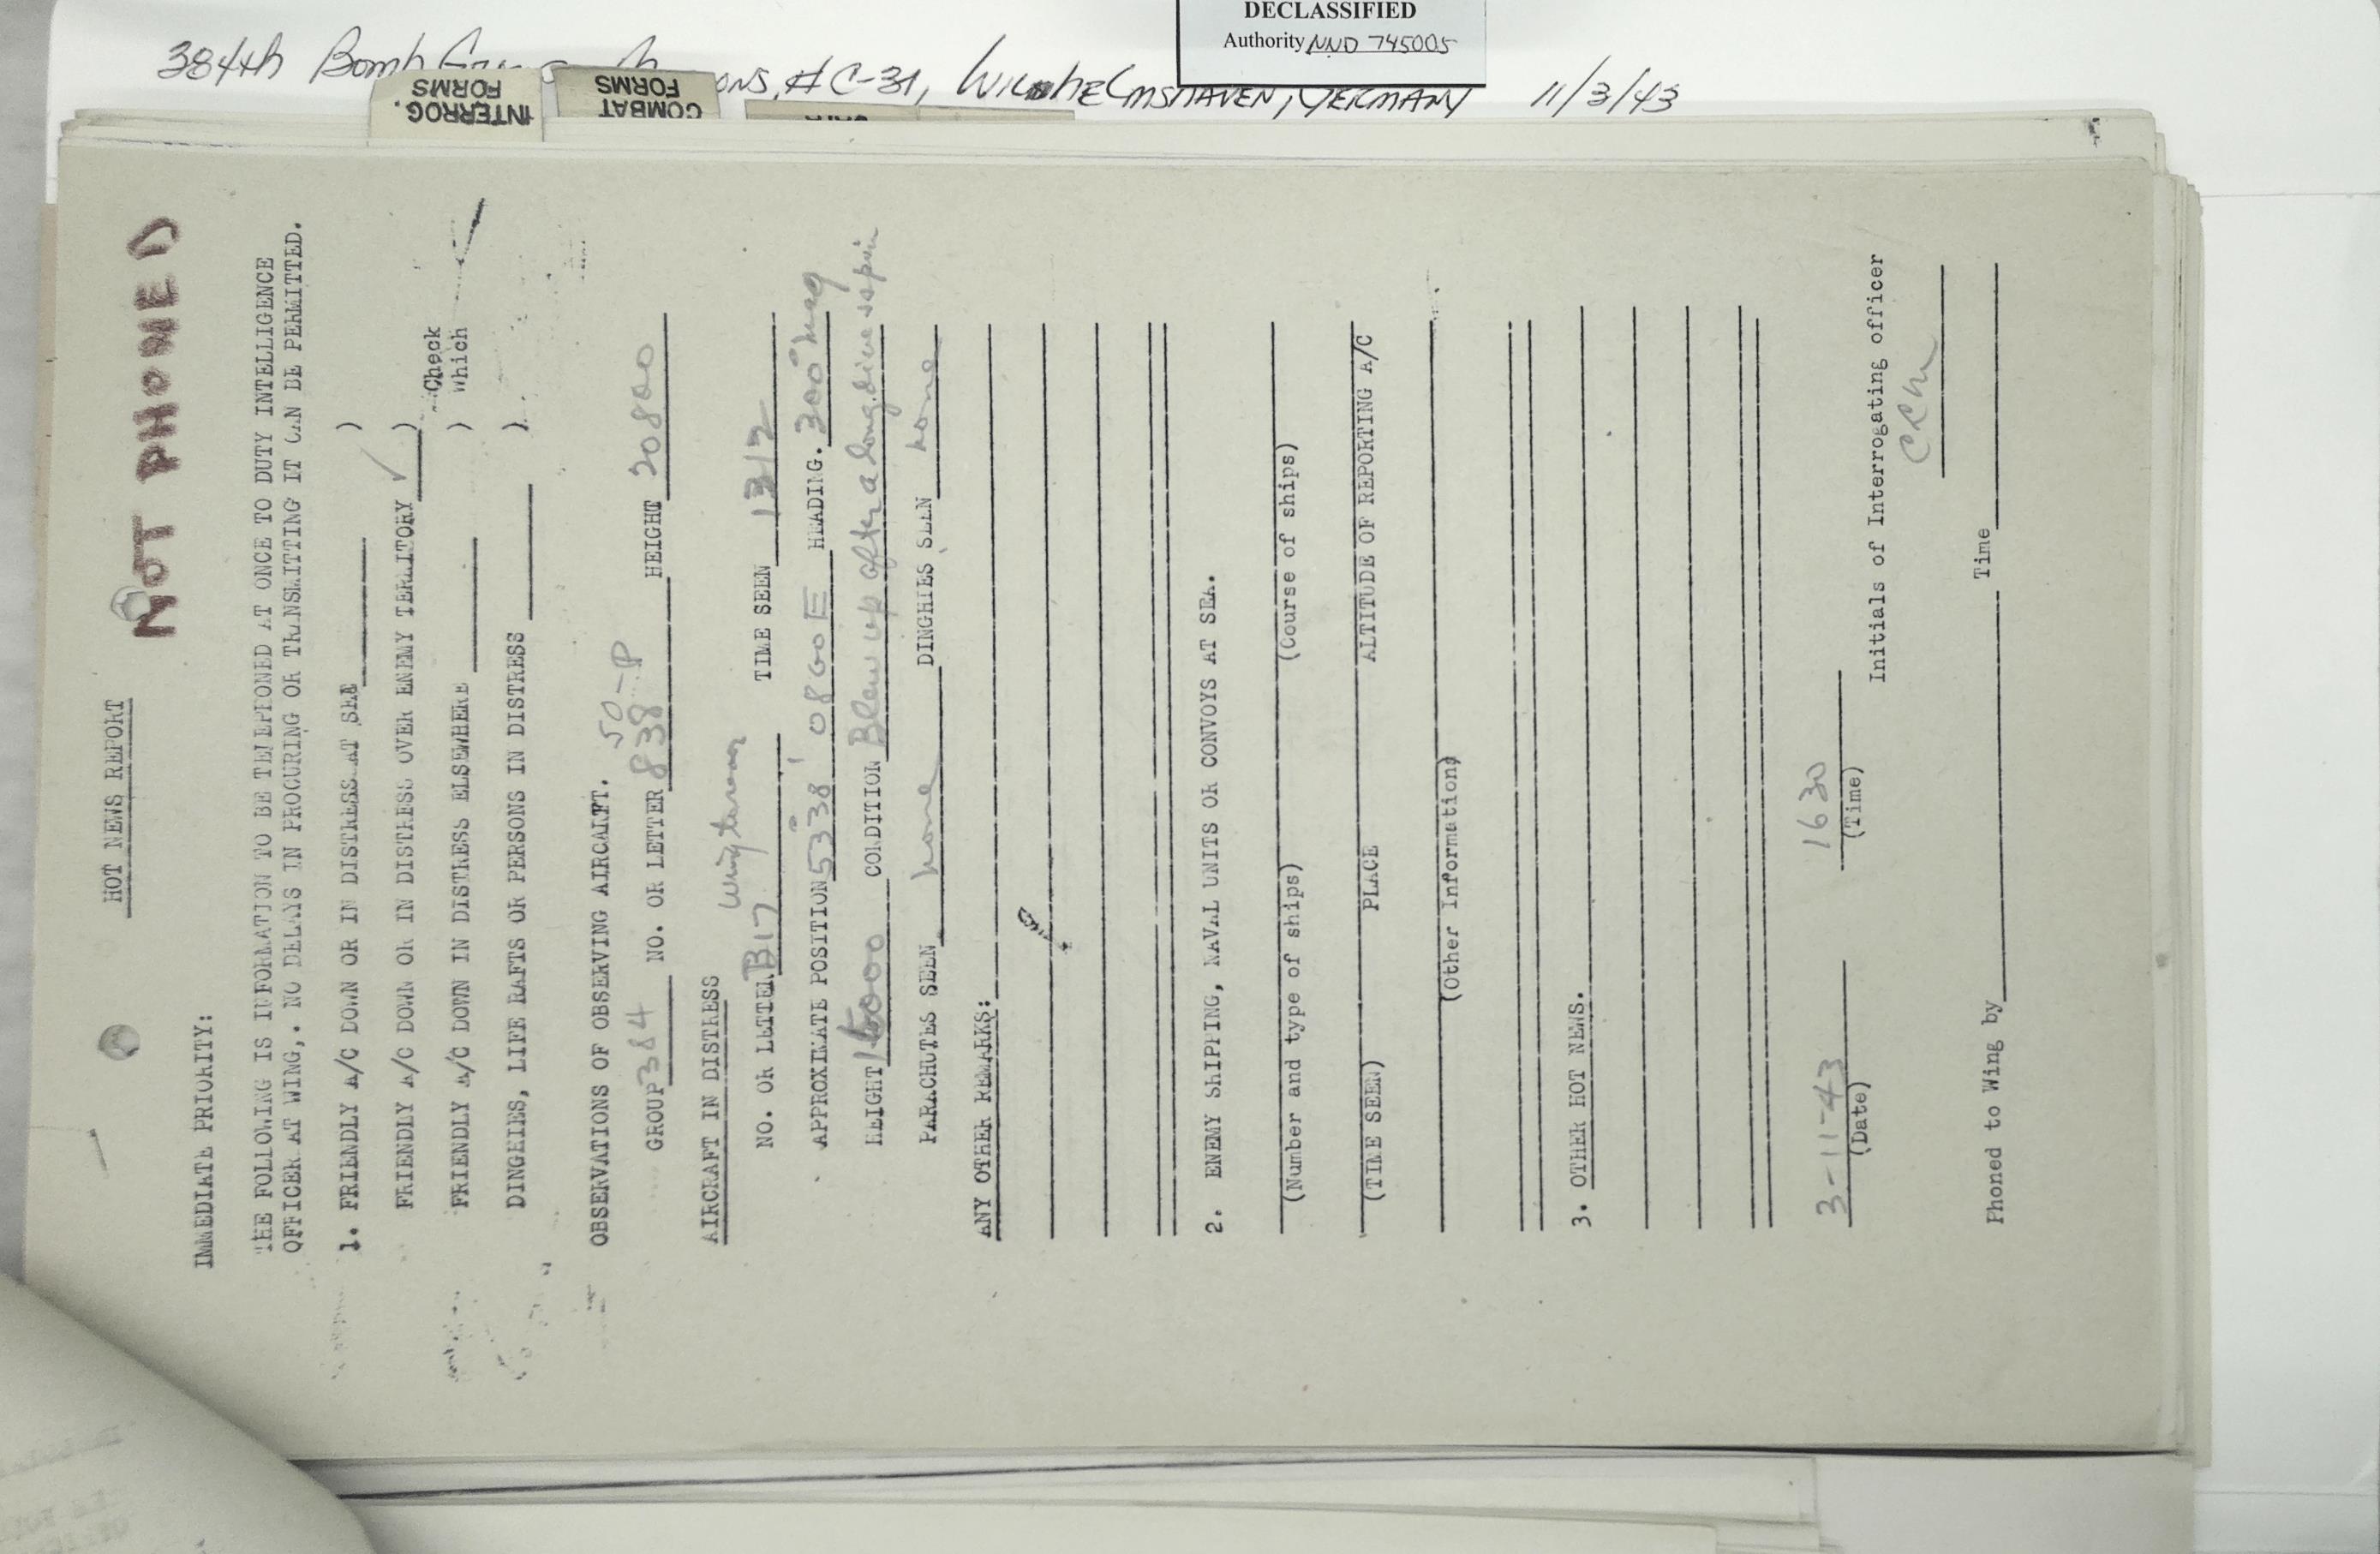 DECLASSIFIED
Authority NND 745005
384th Bomb ONS, # C-31, WILHELMSHAVEN, GERMANY 11/3/43
INTERROG.
FORMS
COMBAT
FORMS
HOT NEWS REPORT
NOT PHONED
IMMEDIATE PRIORITY:
THE FOLLOWING IS INFORMATION TO BE TELEPHONED AT ONCE TO DUTY INTELLIGENCE
OFFICER AT WING,. NO DELAYS IN PROCURING OR TRANSMITTING IT CAN BE PERMITTED.
1. FRIENDLY A/C DOWN OR IN DISTRESS AT SEA )
FRIENDLY A/C DOWN OR IN DISTRESS OVER ENEMY TERRITORY ✓ )
Check
FRIENDLY A/C DOWN IN DISTRESS ELSEWHERE ) Which
DINGHIES, LIFE RAFTS OR PERSONS IN DISTRESS )
OBSERVATIONS OF OBSERVING AIRCRAFT. SO-P
GROUP 384 NO. OR LETTER 838 HEIGHT 20800
AIRCRAFT IN DISTRESS
NO. OR LETTER B17 TIME SEEN 1312
APPROXIMATE POSITION 53°38' 0800E HEADING. 300° mag
HEIGHT 15000 CONDITION Blew up after a long dive & spin
PARACHUTES SEEN none DINGHIES SEEN none
ANY OTHER REMARKS:
2. ENEMY SHIPPING, NAVAL UNITS OR CONVOYS AT SEA.
(Number and type of ships) (Course of ships)
(TIME SEEN) PLACE ALTITUDE OF REPORTING A/C
(Other Information)
3. OTHER HOT NEWS.
3-11-43 1630
(Date) (Time)
Initials of Interrogating officer
CRM
Phoned to Wing by Time